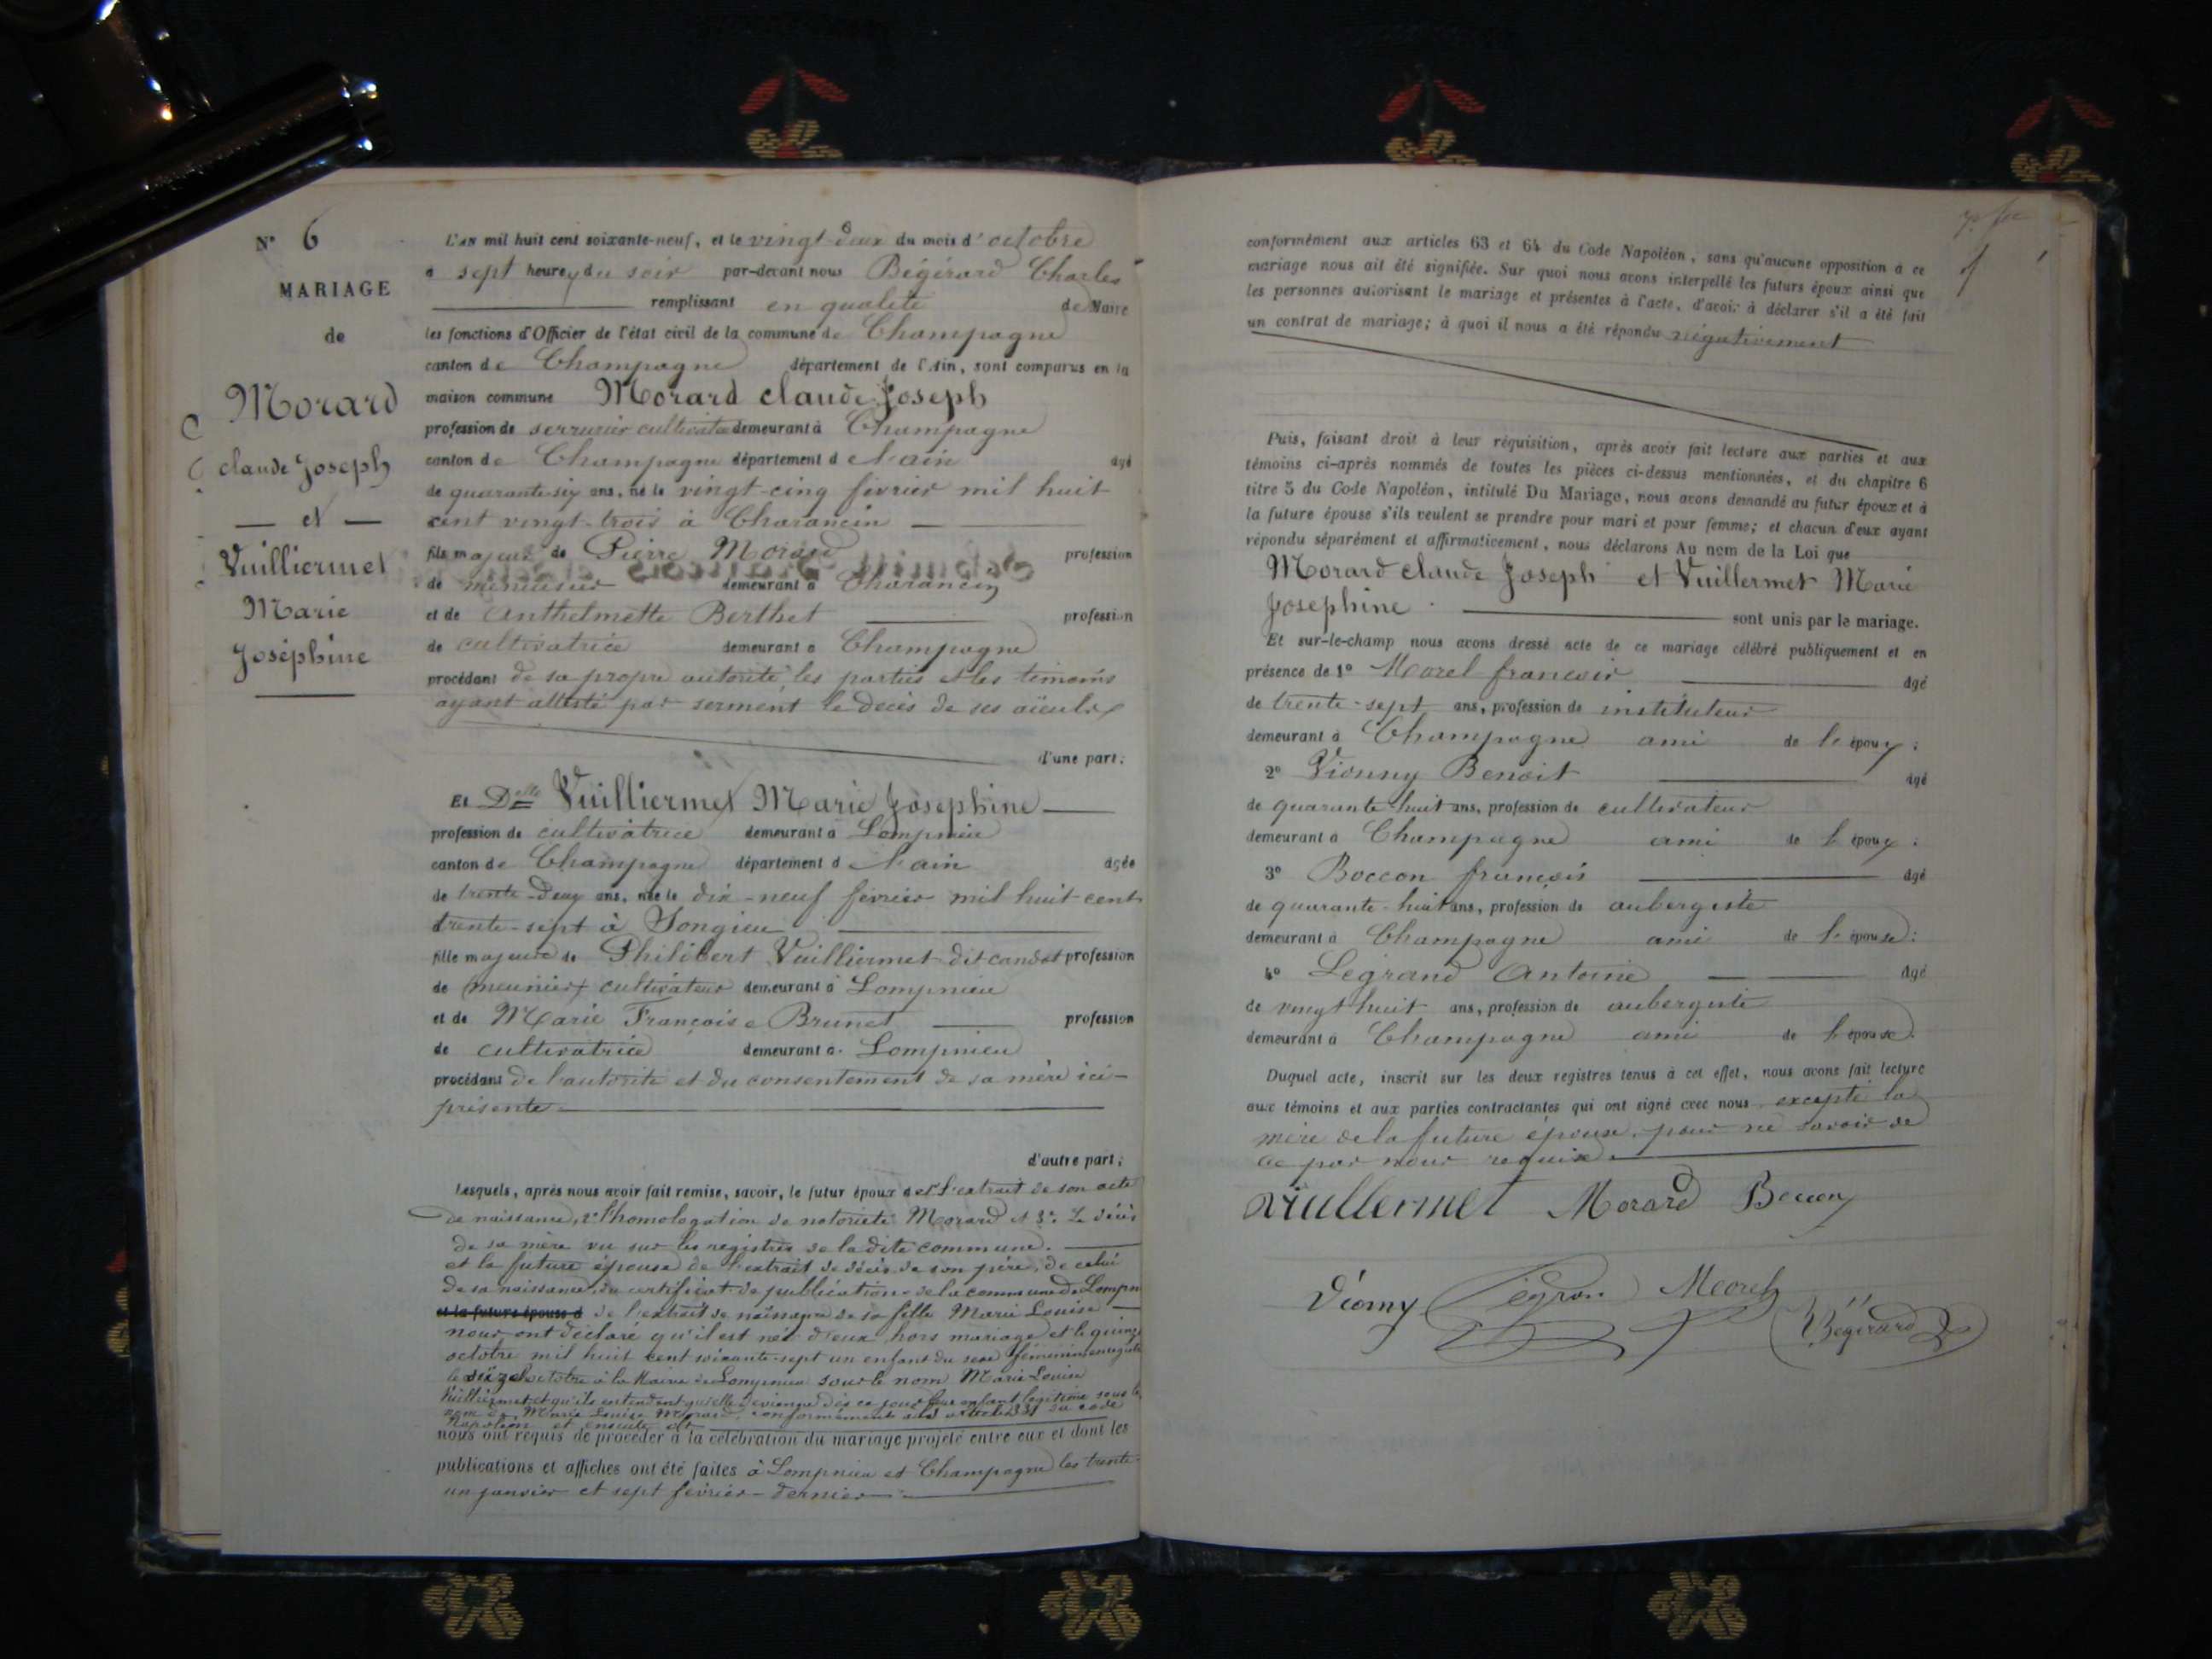 N° 6
MARIAGE
de
Morard
claude Joseph
— et —
Vuilliermet
Marie
Joséphine
L'AN mil huit cent soixante-neuf, et le vingt-deux du mois d'octobre
à sept heures du soir par-devant nous Bégérard Charles
remplissant en qualité de Maire
les fonctions d'Officier de l'état civil de la commune de Champagne
canton de Champagne département de l'Ain, sont comparus en la
maison commune Morard claude Joseph
profession de serrurier cultivateur demeurant à Champagne
canton de Champagne département de l'ain âgé
de quarante-six ans, né le vingt-cinq février mil huit
cent vingt-trois à Charancin
fils majeur de Pierre Morard profession
de menuisier demeurant à Charancin
et de Anthelmette Berthet profession
de cultivatrice demeurant à Champagne
procédant de sa propre autorité, les parties et les témoins
ayant attesté par serment le décès de ses aïeuls
d'une part;
Et Delle Vuilliermet Marie Josephine
profession de cultivatrice demeurant à Lompnieu
canton de Champagne département de l'ain âgée
de trente-deux ans, née le dix-neuf février mil huit-cent
trente-sept à Songieu
fille majeure de Philibert Vuilliermet dit candot profession
de meunier cultivateur demeurant à Lompnieu
et de Marie Françoise Brunet profession
de cultivatrice demeurant à Lompnieu
procédant de l'autorité et du consentement de sa mère ici-
présente
d'autre part;
Lesquels, après nous avoir fait remise, savoir, le futur époux de l'extrait de son acte
de naissance, 2° l'homologation de notoriété Morard et 3° le décès
de sa mère vu sur les registres de la dite commune.
et la future épouse de l'extrait de décès de son père, de celui
de sa naissance, du certificat de publication de la commune de Lompn
et la future épouse d de l'extrait de naissance de sa fille Marie Louise
nous ont déclaré qu'il est né d'eux hors mariage et le quinze
octobre mil huit cent soixante-sept un enfant du sexe féminin enregistré
le seize octobre à la Mairie de Lompnieu sous le nom Marie Louise
Vuilliermet et qu'ils entendent qu'elle devienne dès ce jour leur enfant légitime sous le
nom de Marie Louise Morard, conformément aux article 331 du code
Napoléon et ensuite
nous ont requis de procéder à la célébration du mariage projeté entre eux et dont les
publications et affiches ont été faites à Lompnieu et Champagne les trente
un janvier et sept février-dernier
conformément aux articles 63 et 64 du Code Napoléon, sans qu'aucune opposition à ce
mariage nous ait été signifiée. Sur quoi nous avons interpellé les futurs époux ainsi que
les personnes autorisant le mariage et présentes à l'acte, d'avoir à déclarer s'il a été fait
un contrat de mariage; à quoi il nous a été répondu négativement
Puis, faisant droit à leur réquisition, après avoir fait lecture aux parties et aux
témoins ci-après nommés de toutes les pièces ci-dessus mentionnées, et du chapitre 6
titre 5 du Code Napoléon, intitulé Du Mariage, nous avons demandé au futur époux et à
la future épouse s'ils veulent se prendre pour mari et pour femme; et chacun d'eux ayant
répondu séparément et affirmativement, nous déclarons Au nom de la Loi que
Morard claude Joseph et Vuillermet Marie
Josephine
sont unis par le mariage.
Et sur-le-champ nous avons dressé acte de ce mariage célébré publiquement et en
présence de 1° Morel francois âgé
de trente-sept ans, profession de instituteur
demeurant à Champagne ami de l'époux;
2° Vionny Benoit âgé
de quarante-huit ans, profession de cultivateur
demeurant à Champagne ami de l'époux;
3° Boccon françois âgé
de quarante-huit ans, profession de aubergiste
demeurant à Champagne ami de l'épouse;
4° Legrand Antoine âgé
de vingt huit ans, profession de aubergiste
demeurant à Champagne ami de l'épouse.
Duquel acte, inscrit sur les deux registres tenus à cet effet, nous avons fait lecture
aux témoins et aux parties contractantes qui ont signé avec nous excepté la
mère de la future épouse, pour ne savoir de
ce par nous requise.
Vuillermet Morard Boccon
Morel
Bégérard